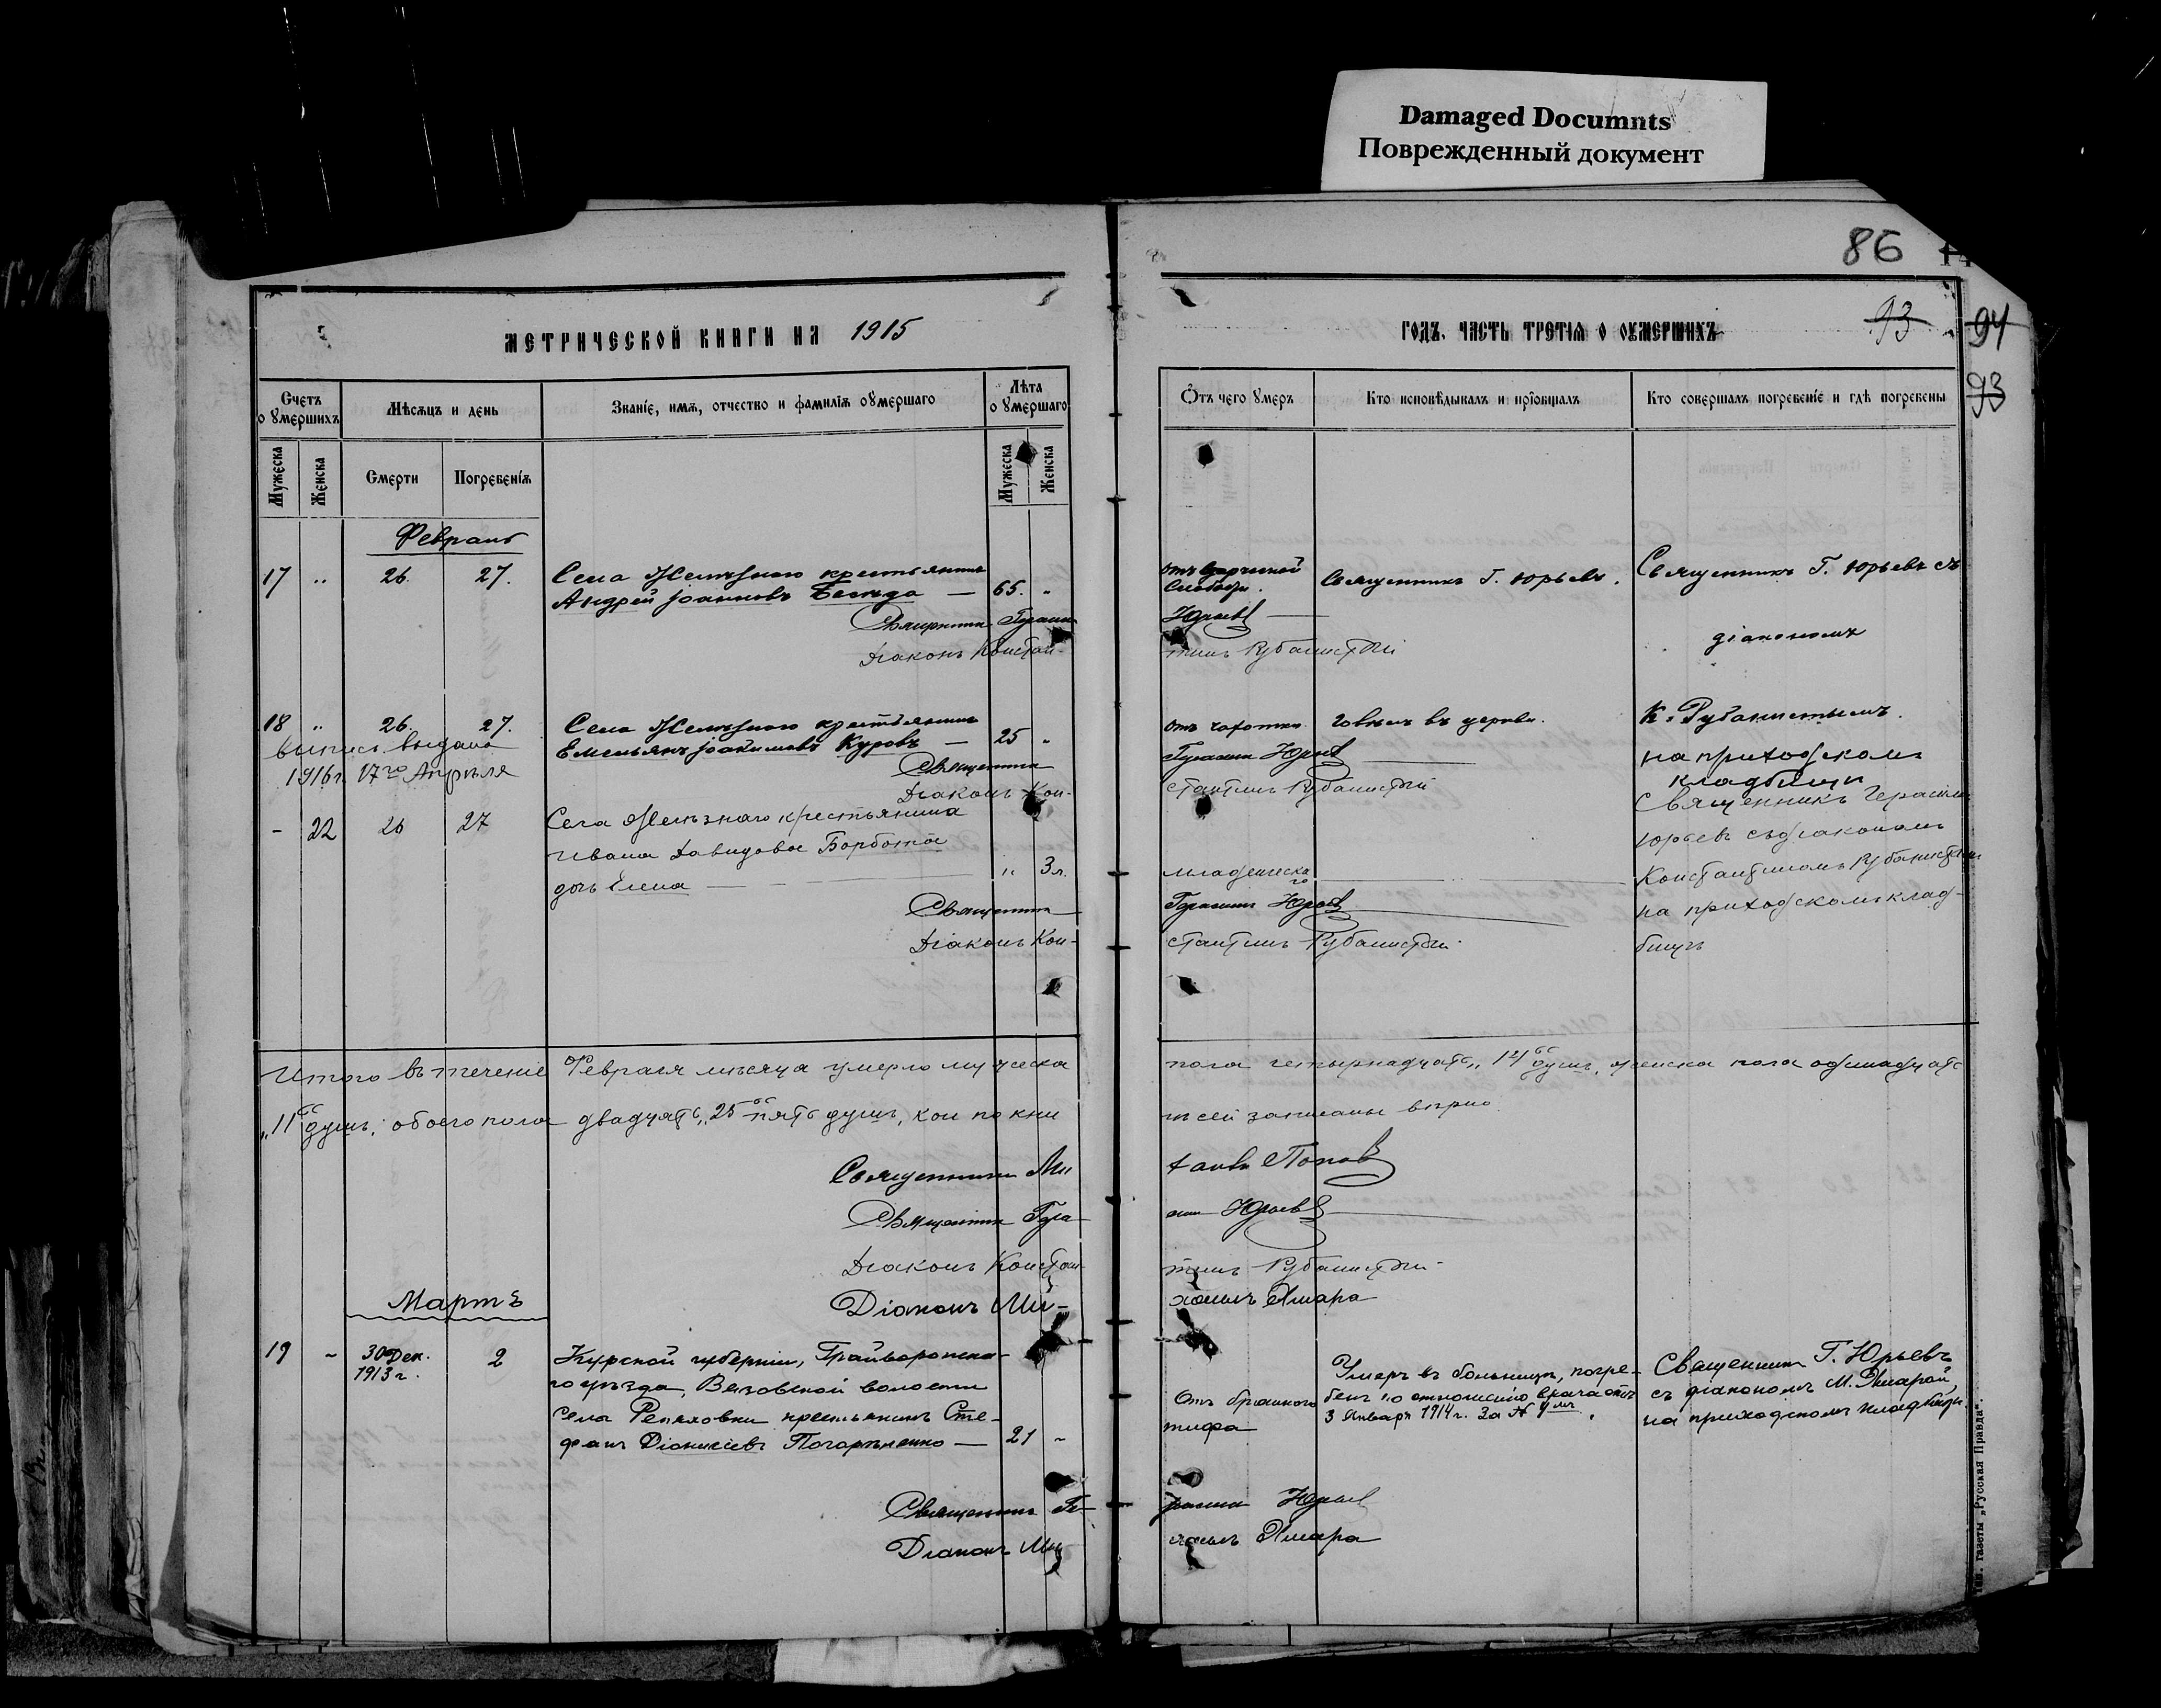 Damaged Documnts
Поврежденный документ
86
МЕТРИЧЕСКОЙ КНИГИ НА 1915
ГОДЪ. ЧАСТЬ ТРЕТІЯ О ОУМЕРШИХЪ
93
94
93
Счетъ о умершихъ
Мѣсяцъ и день
Званіе, имя, отчество и фамилія оумершаго
Лѣта о умершаго
Отъ чего умеръ
Кто исповѣдывалъ и пріобщалъ
Кто совершалъ погребеніе и гдѣ погребены
Мужеска
Женска
Смерти
Погребенія
Мужеска
Женска
Февраль
17 " 26. 27. Села Желѣзнаго крестьянинъ
Андрей Іоанновъ Бесѣда — 65. "
отъ
слабости.
Священникъ Г. Юрьевъ.
Священникъ Г. Юрьевъ съ
діакономъ
Священникъ Герасим
Юрьевъ
Діаконъ Констан-
тинъ Рубанистый
18 " 26. 27. Села Желѣзнаго крестьянинъ
Емельянъ Іоакимовъ Куровъ — 25 "
отъ чахотки
говѣлъ въ церкви.
К. Рубанистымъ.
на приходскомъ
кладбищѣ
выпись выдана
1916 г. 17го Апрѣля
Священникъ
Герасимъ Юрьевъ
Діаконъ Кон-
стантинъ Рубанистый
- 22 26 27 Села Желѣзнаго крестьянина
Ивана Давидова Борбота
дочь Елена — " 3 л.
младенческа
го
Священникъ Герасим
Юрьевъ съ діакономъ
Константиномъ Рубанистым
на приходскомъ клад-
бищѣ
Священникъ
Герасимъ Юрьевъ
Діаконъ Кон-
стантинъ Рубанистый
Итого въ теченіе Февраля мѣсяца умерло мужеска
пола четырнадцать „14“ душъ, женска пола одинадцать
„11“ душъ; обоего пола двадцать „25“ пять душъ, кои по кни
гѣ сей записаны вѣрно
Священникъ Ми
хаилъ Поповъ
Священникъ Гера
симъ Юрьевъ
Діаконъ Констан-
тинъ Рубанистый
Діаконъ Ми-
хаилъ Хмара
Мартъ
19 - 30 Дек. 2
1913 г.
Курской губерніи, Грайворонска-
го уѣзда, Вязовской волости
села Репяховки крестьянинъ Сте-
фанъ Діонисіевъ Погорѣленко — 21 -
Отъ брюшного
тифа
Умеръ въ больницѣ, погре-
бенъ по отношенію врача отъ
3 Января 1914 г. за №
Священникъ Г. Юрьевъ
съ діакономъ М. Хмарой
на приходскомъ кладбищѣ.
Священникъ Ге-
расимъ Юрьевъ
Діаконъ Ми
хаилъ Хмара
тип. газеты „Русская Правда“.